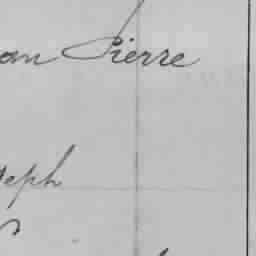 an Pierre
seph